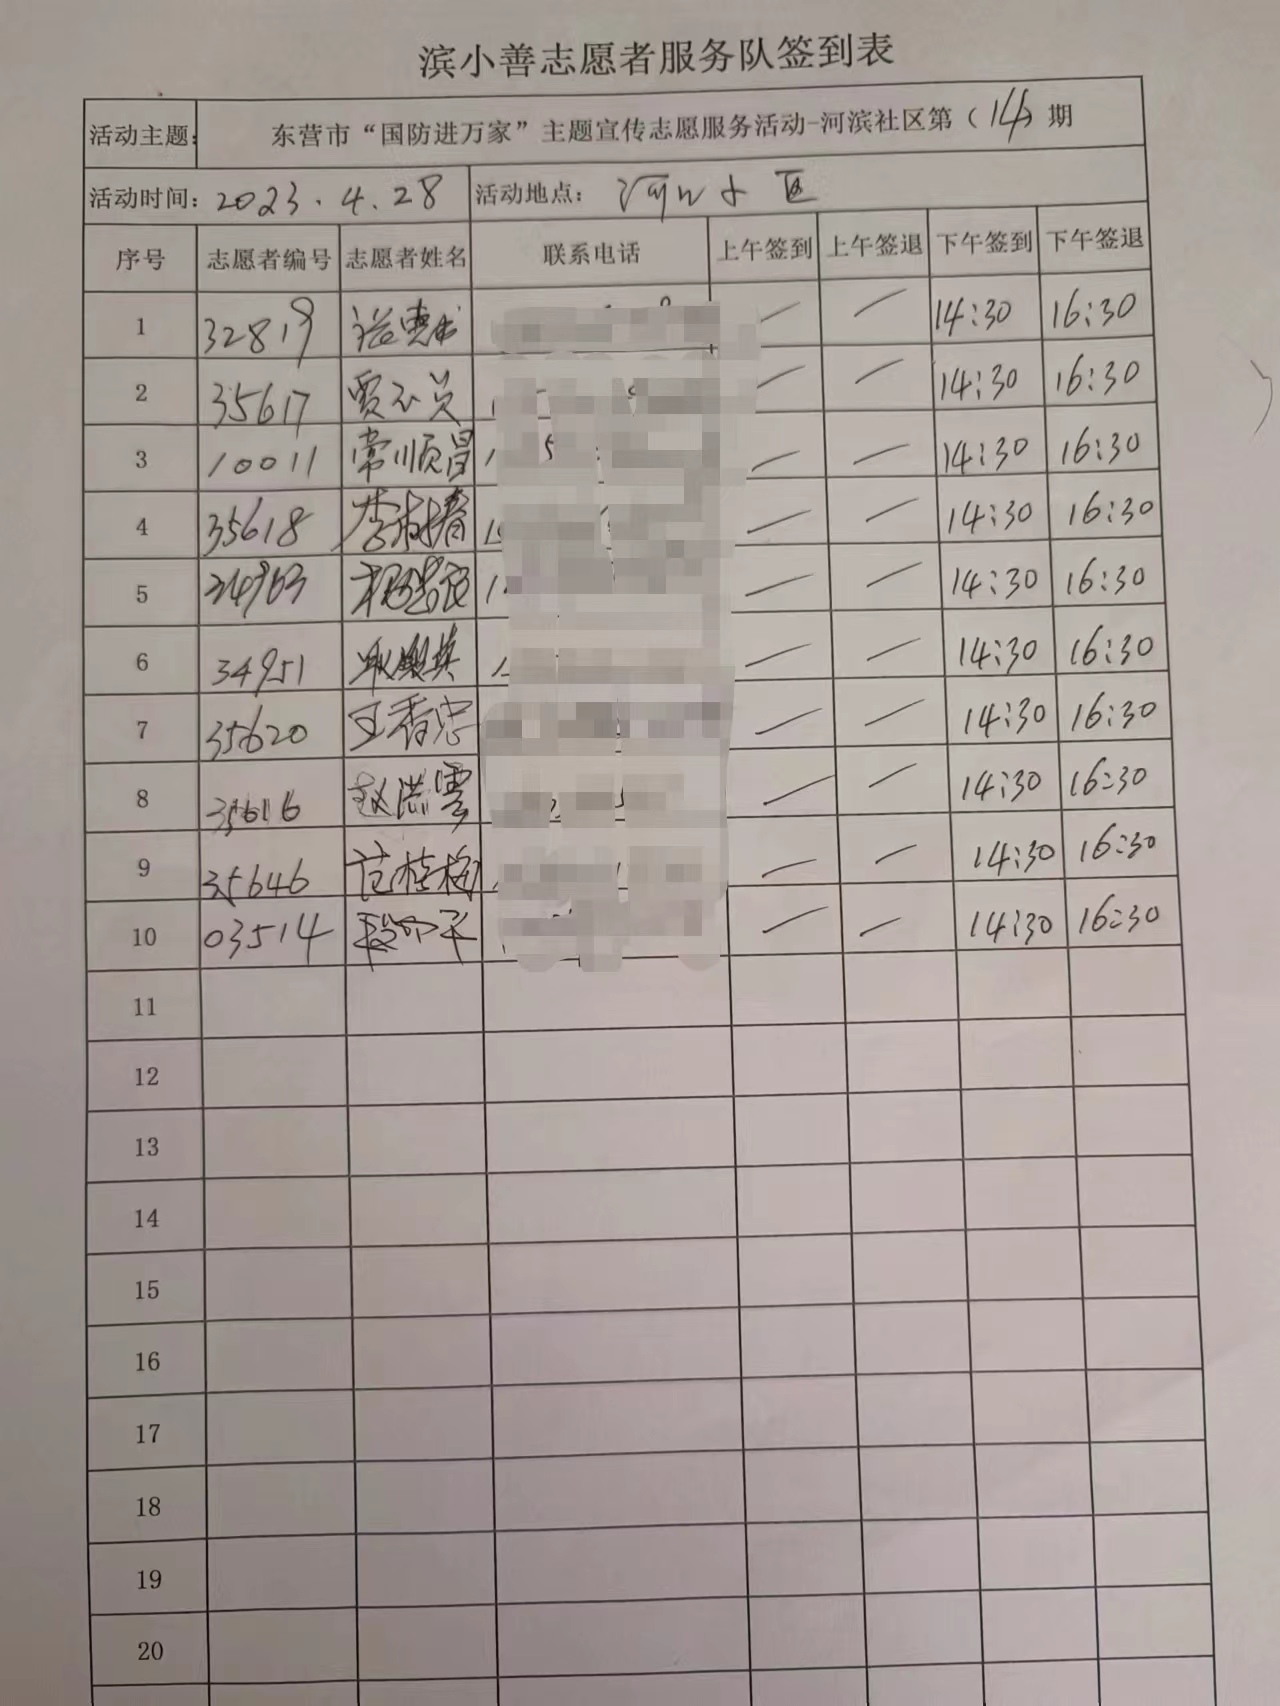 滨小善志愿者服务队签到表
活动主题: 东营市“国防进万家”主题宣传志愿服务活动-河滨社区第（14）期
活动时间: 2023.4.28 活动地点: 河心小区
序号 志愿者编号 志愿者姓名 联系电话 上午签到 上午签退 下午签到 下午签退
1 32819 14:30 16:30
2 35617 贾 14:30 16:30
3 10011 常顺昌 14:30 16:30
4 35618 李树春 14:30 16:30
5 14:30 16:30
6 34951 14:30 16:30
7 35620 王香忠 14:30 16:30
8 35616 赵洪雲 14:30 16:30
9 35646 范桂梅 14:30 16:30
10 03514 14:30 16:30
11
12
13
14
15
16
17
18
19
20